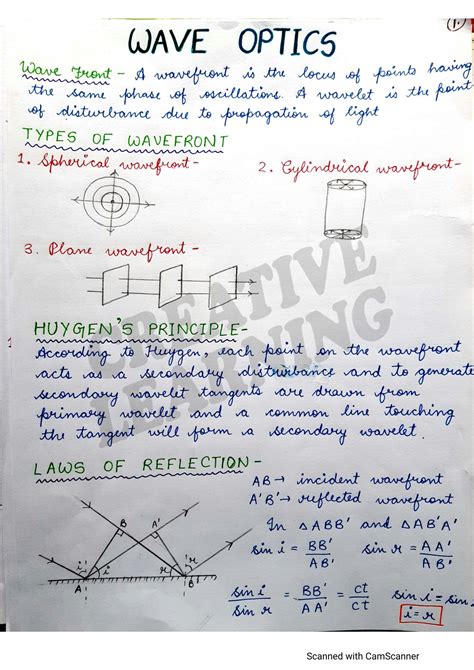 (1.)
WAVE OPTICS
Wave Front - A wavefront is the locus of points having
the same phase of oscillations. A wavelet is the point
of disturbance due to propagation of light
TYPES OF WAVEFRONT
1. Spherical wavefront -
2. Cylindrical wavefront -
3. Plane wavefront -
CREATIVE
LEARNING
HUYGEN'S PRINCIPLE -
According to Huygen, each point on the wavefront
acts as a secondary disturbance and to generate
secondary wavelet tangents are drawn from
primary wavelet and a common line touching
the tangent will form a secondary wavelet.
LAWS OF REFLECTION -
AB → incident wavefront
A'B' → reflected wavefront
In △ABB' and △AB'A'
sin i = BB' / AB' sin r = AA' / AB'
sin i / sin r = BB' / AA' = ct / ct sin i = sin
i = r
B A'
i i r r
A B'
Scanned with CamScanner